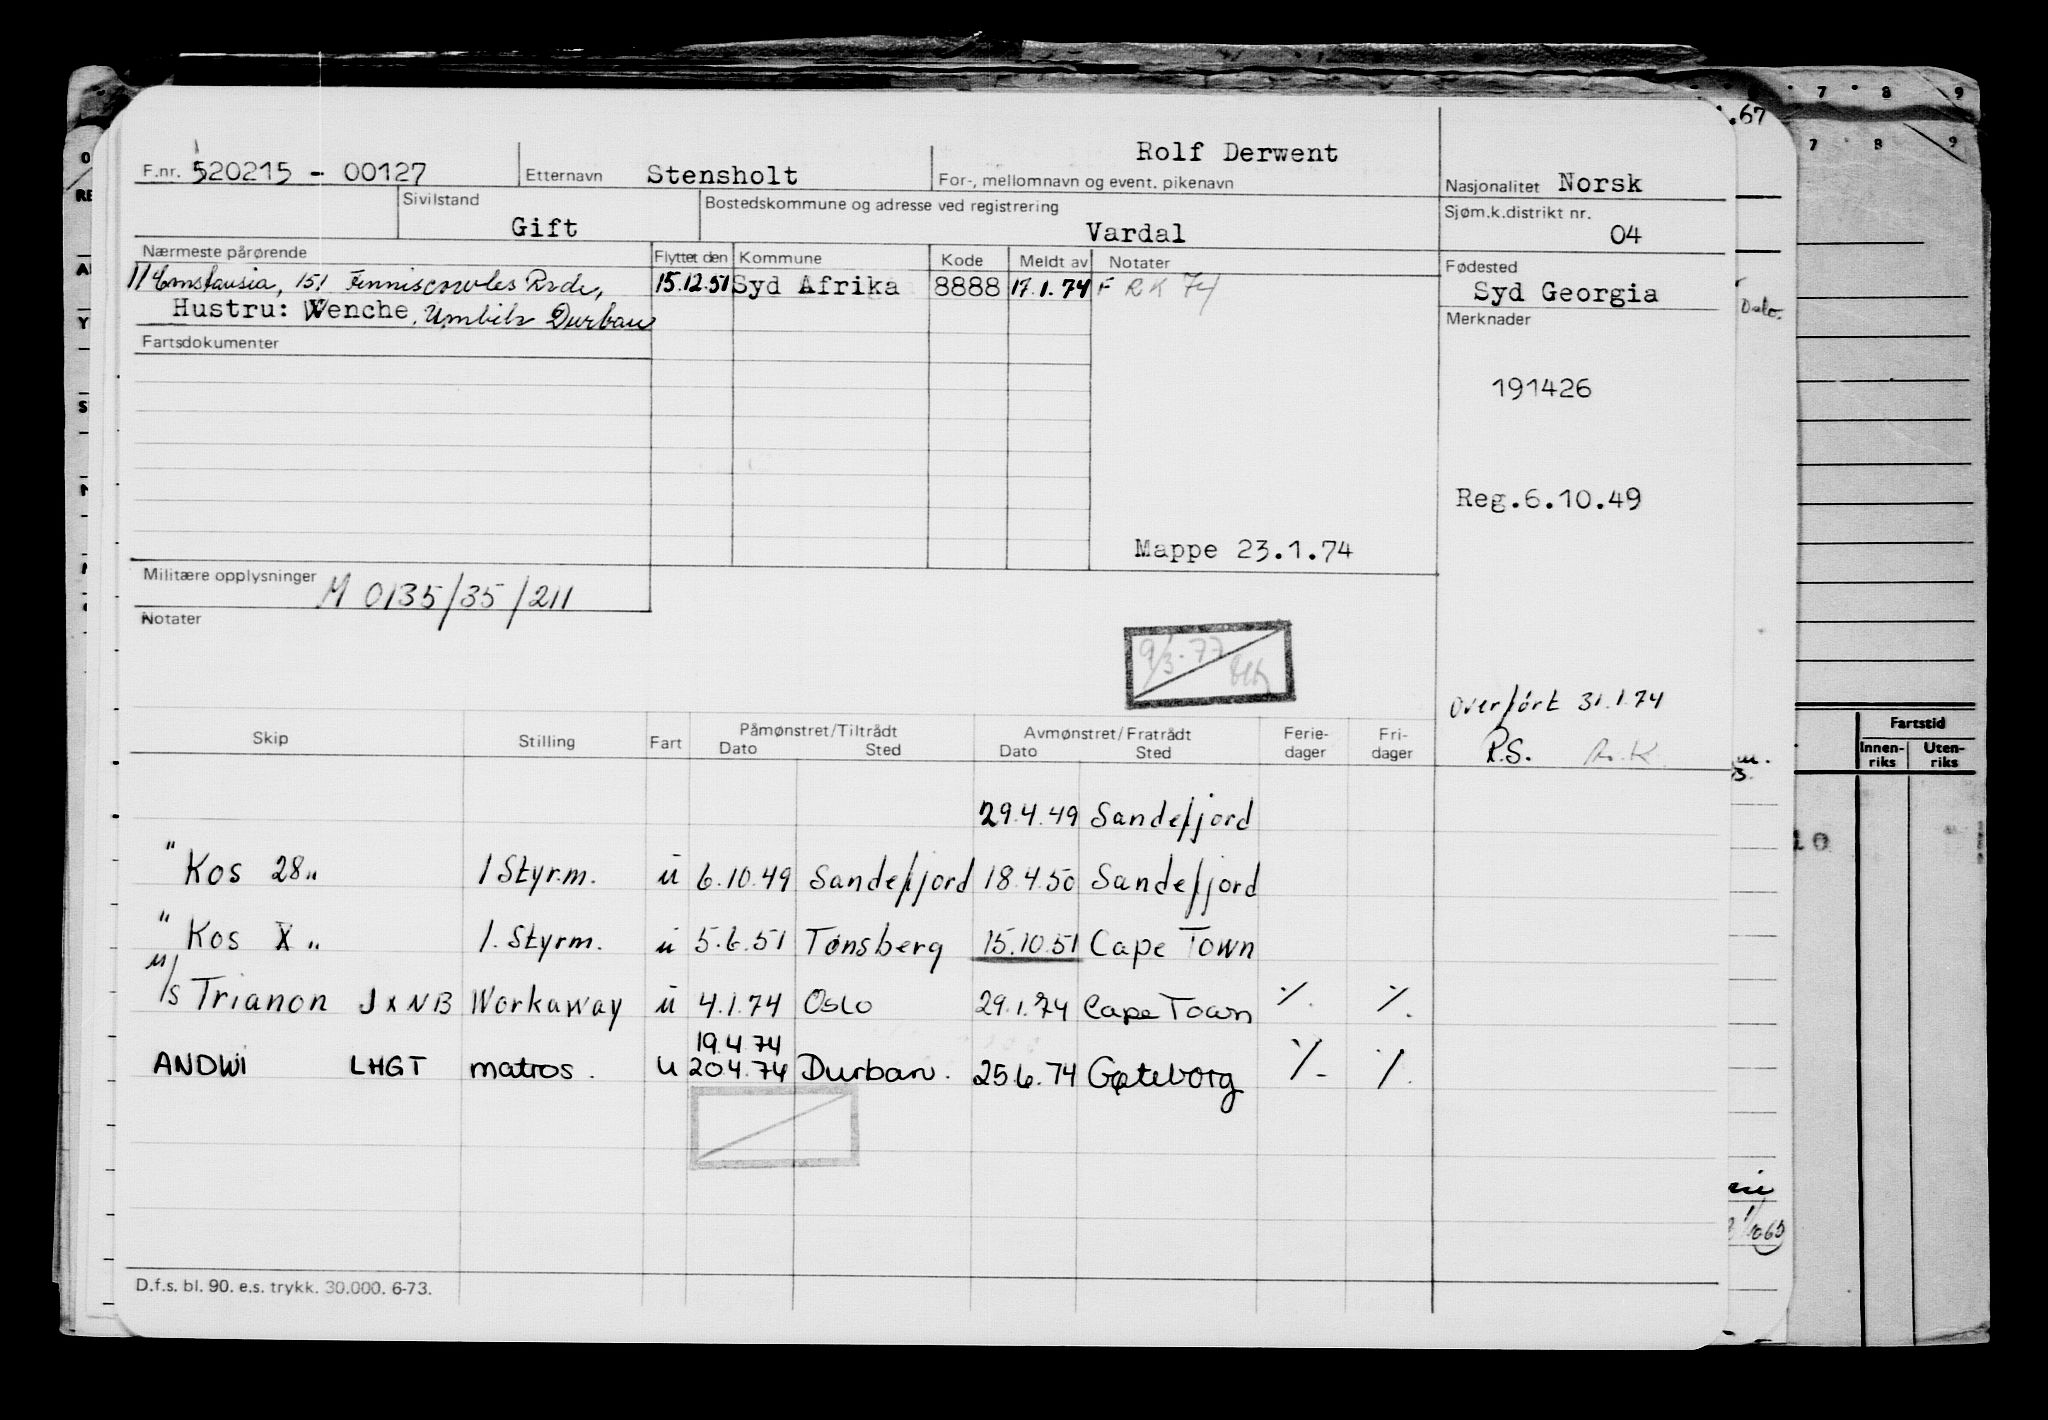 F.nr. 520215 - 00127
Etternavn Stensholt
Rolf Derwent
For-, mellomnavn og event. pikenavn
Nasjonalitet Norsk
Sivilstand
Gift
Bostedskommune og adresse ved registrering
Vardal
Sjøm.k.distrikt nr.
04
Nærmeste pårørende
Flyttet den Kommune Kode Meldt av Notater
Fødested
151
15.12.51 Syd Afrika 8888 17.1.74 F RK 74
Syd Georgia
Hustru: Wenche, Umbilo Durban
Merknader
Fartsdokumenter
191426
Reg.6.10.49
Mappe 23.1.74
Militære opplysninger M 0135/35/211
Notater
9/3-77
Overført 31.1.74
R.S. R.K.
Skip Stilling Fart Påmønstret/Tiltrådt Dato Sted Avmønstret/Fratrådt Dato Sted Ferie-dager Fri-dager
29.4.49 Sandefjord
"Kos 28" 1 Styrm. u 6.10.49 Sandefjord 18.4.50 Sandefjord
"Kos X" 1. Styrm. u 5.6.51 Tønsberg 15.10.51 Cape Town
M/S Trianon JXNB Workaway u 4.1.74 Oslo 29.1.74 Cape Town ٪ ٪
19.4.74
ANDWI LHGT matros. u 20.4.74 Durban. 25.6.74 Gøteborg ٪ ٪
D.f.s. bl. 90. e.s. trykk. 30.000. 6-73.
.67
7 8 9
7 8 9
Oslo.
Fartstid
Innen-riks Uten-riks